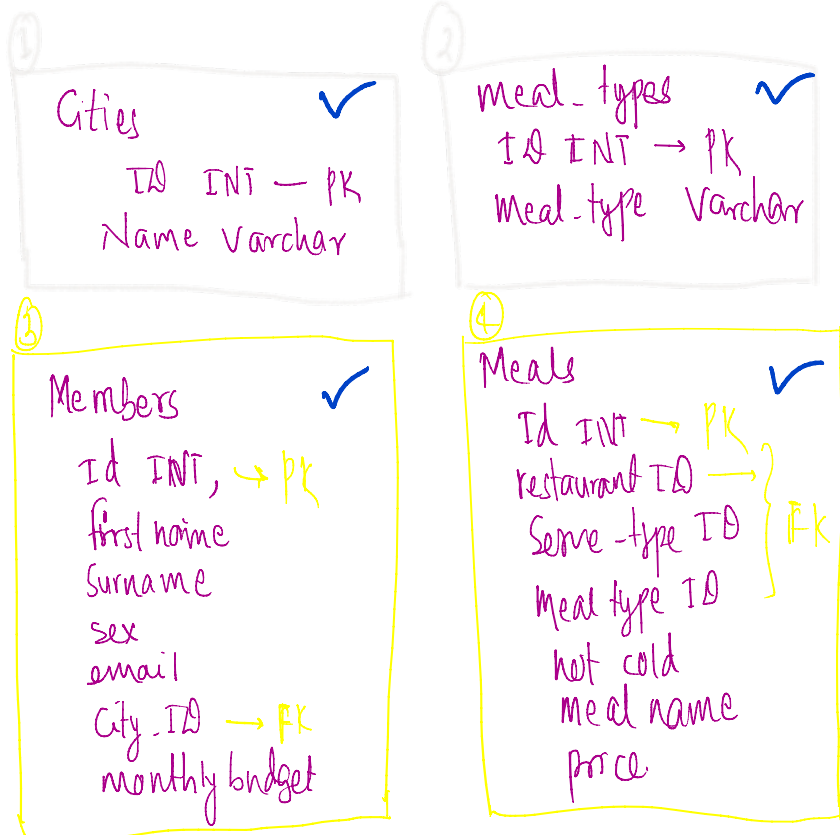 1
Cities
ID INT — PK
Name Varchar
2
meal_types
ID INT → PK
meal_type Varchar
3
Members
Id INT, → PK
first name
Surname
sex
email
City_ID → FK
monthly budget
4
Meals
Id INT → PK
restaurant ID →
Serve_type ID
FK
meal type ID
hot cold
meal name
price